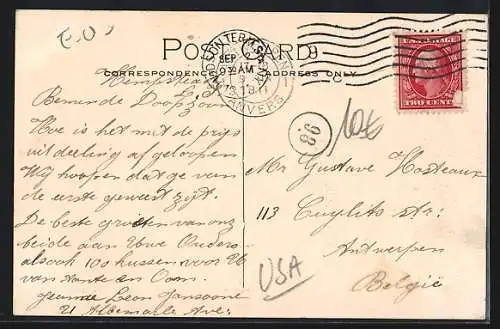 POST CARD
CORRESPONDENCE
ADDRESS ONLY
SEP
9 30 AM
ANVERS
UNITED STATES POSTAGE
TWO CENTS
98
Hempstead
Beminde Doopzoon
Hoe is het met de prijs
uitdeeling af geloopen
Wij hoopen dat ge van
de eerste geweest zijt.
De beste groeten van ons
beide aan Uwe Ouders
alsook 100 kussen voor U
van tante en Oom.
Jeanne Leon Janssone
21 Albemarle Ave.
Mr Gustave Hosteaux
113 Cuylits str:
Antwerpen
België
USA